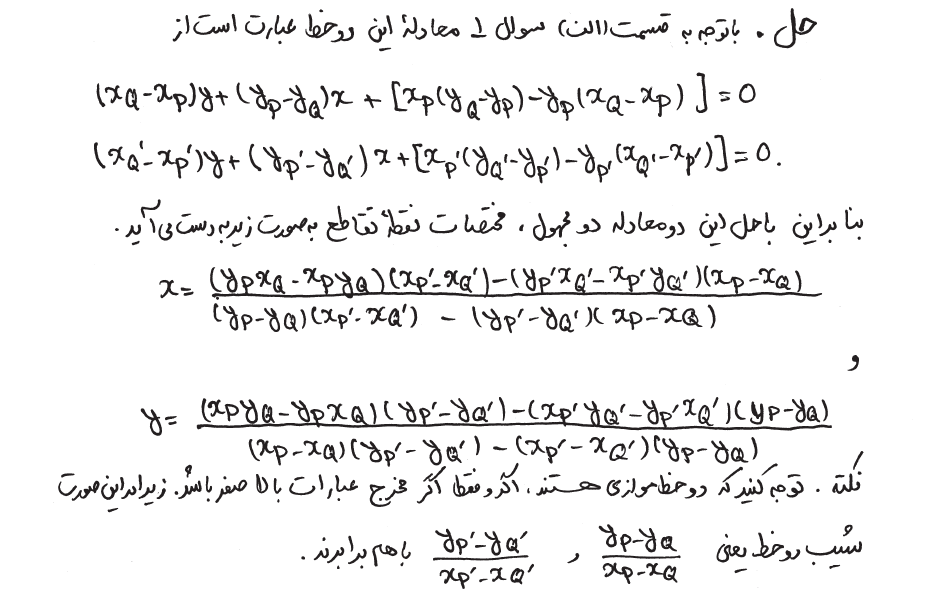 حل . با توجه به قسمت (الف) سوال ۱ معادلهٔ این دو خط عبارت است از
(x_Q-x_P)y+(y_P-y_Q)x+[x_P(y_Q-y_P)-y_P(x_Q-x_P)]=0
(x_Q'-x_P')y+(y_P'-y_Q')x+[x_P'(y_Q'-y_P')-y_P'(x_Q'-x_P')]=0.
بنابراین با حل این دو معادله دو مجهول، مختصات نقطهٔ تقاطع به صورت زیر به دست می‌آید.
x= \frac{(y_P x_Q - x_P y_Q)(x_P'-x_Q')-(y_P' x_Q'-x_P' y_Q')(x_P-x_Q)}{(y_P-y_Q)(x_P'-x_Q') - (y_P'-y_Q')(x_P-x_Q)}
و
y= \frac{(x_P y_Q-y_P x_Q)(y_P'-y_Q')-(x_P' y_Q'-y_P' x_Q')(y_P-y_Q)}{(x_P-x_Q)(y_P'-y_Q') - (x_P'-x_Q')(y_P-y_Q)}
نکته . توجه کنید که دو خط موازی هستند، اگر و فقط اگر مخرج عبارات بالا صفر باشد. زیرا در این صورت
شیب دو خط یعنی \frac{y_P-y_Q}{x_P-x_Q} و \frac{y_P'-y_Q'}{x_P'-x_Q'} با هم برابرند.